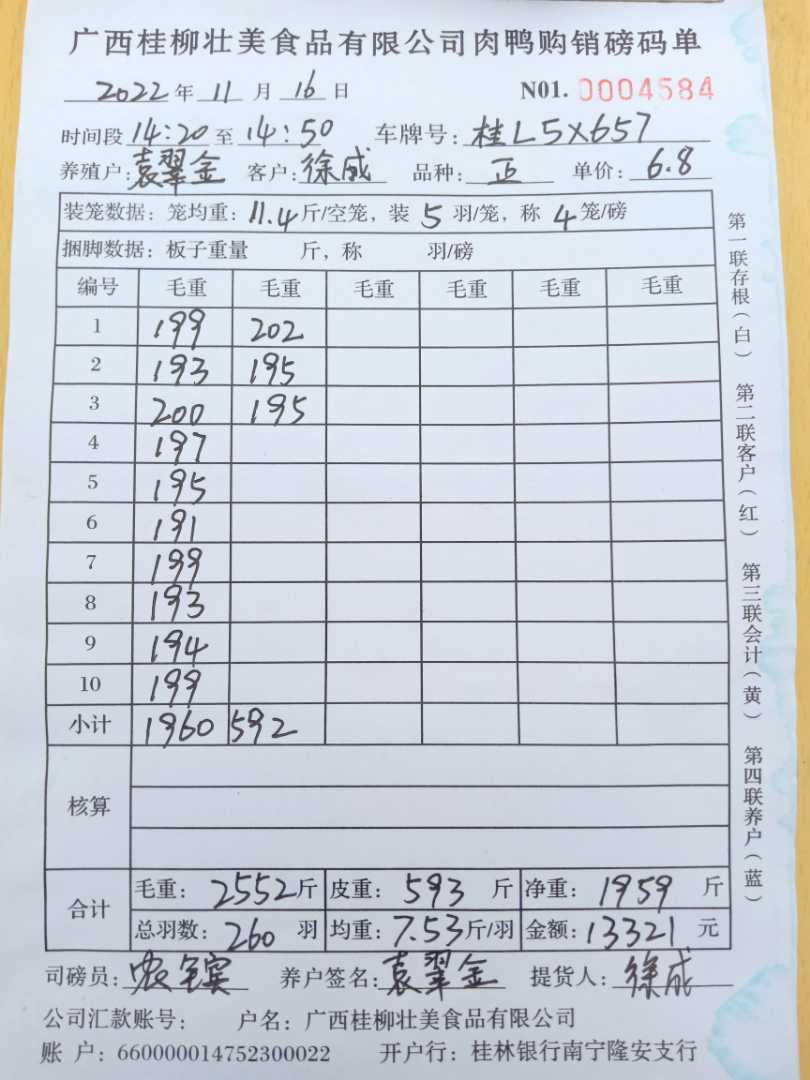 广西桂柳壮美食品有限公司肉鸭购销磅码单
2022年11月16日 N01. 0004584
时间段14:20至14:50 车牌号:桂L5X657
养殖户:袁翠金 客户:徐成 品种:正 单价:6.8
装笼数据:笼均重:11.4斤/空笼,装5羽/笼,称4笼/磅
捆脚数据:板子重量 斤,称 羽/磅
编号 毛重 毛重 毛重 毛重 毛重 毛重
1 199 202
2 193 195
3 200 195
4 197
5 195
6 191
7 199
8 193
9 194
10 199
小计 1960 592
核算
合计 毛重:2552斤 皮重:593斤 净重:1959斤
总羽数:260羽 均重:7.53斤/羽 金额:13321元
司磅员: 养户签名:袁翠金 提货人:徐成
公司汇款账号: 户名:广西桂柳壮美食品有限公司
账 户:660000014752300022 开户行:桂林银行南宁隆安支行
第一联存根(白) 第二联客户(红) 第三联会计(黄) 第四联养户(蓝)